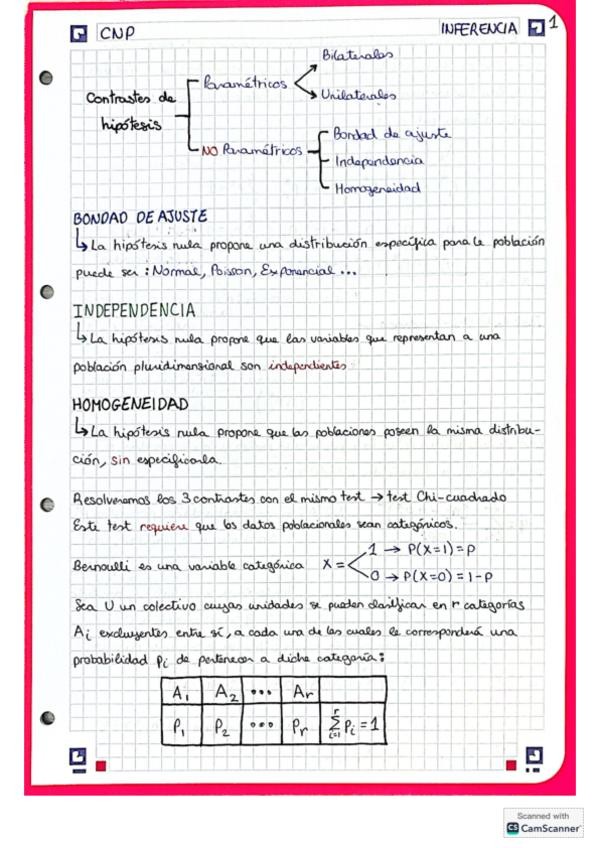 CNP
INFERENCIA
1
Contrastes de
hipótesis
Paramétricos
Bilaterales
Unilaterales
NO Paramétricos
Bondad de ajuste
Independencia
Homogeneidad
BONDAD DE AJUSTE
↳ La hipótesis nula propone una distribución específica para la población
puede ser : Normal, Poisson, Exponencial ...
INDEPENDENCIA
↳ La hipótesis nula propone que las variables que representan a una
población pluridimensional son independientes
HOMOGENEIDAD
↳ La hipótesis nula propone que las poblaciones poseen la misma distribu-
ción, sin especificarla.
Resolveremos los 3 contrastes con el mismo test → test Chi-cuadrado
Este test requiere que los datos poblacionales sean categóricos.
Bernoulli es una variable categórica X =
1 → P(X=1) = P
0 → P(X=0) = 1-P
Sea U un colectivo cuyas unidades se pueden clasificar en r categorías
Ai excluyentes entre sí, a cada una de las cuales le corresponderá una
probabilidad Pi de pertenecer a dicha categoría :
A1 A2 ... Ar
P1 P2 ... Pr ∑ i=1 r Pi = 1
Scanned with
CS CamScanner